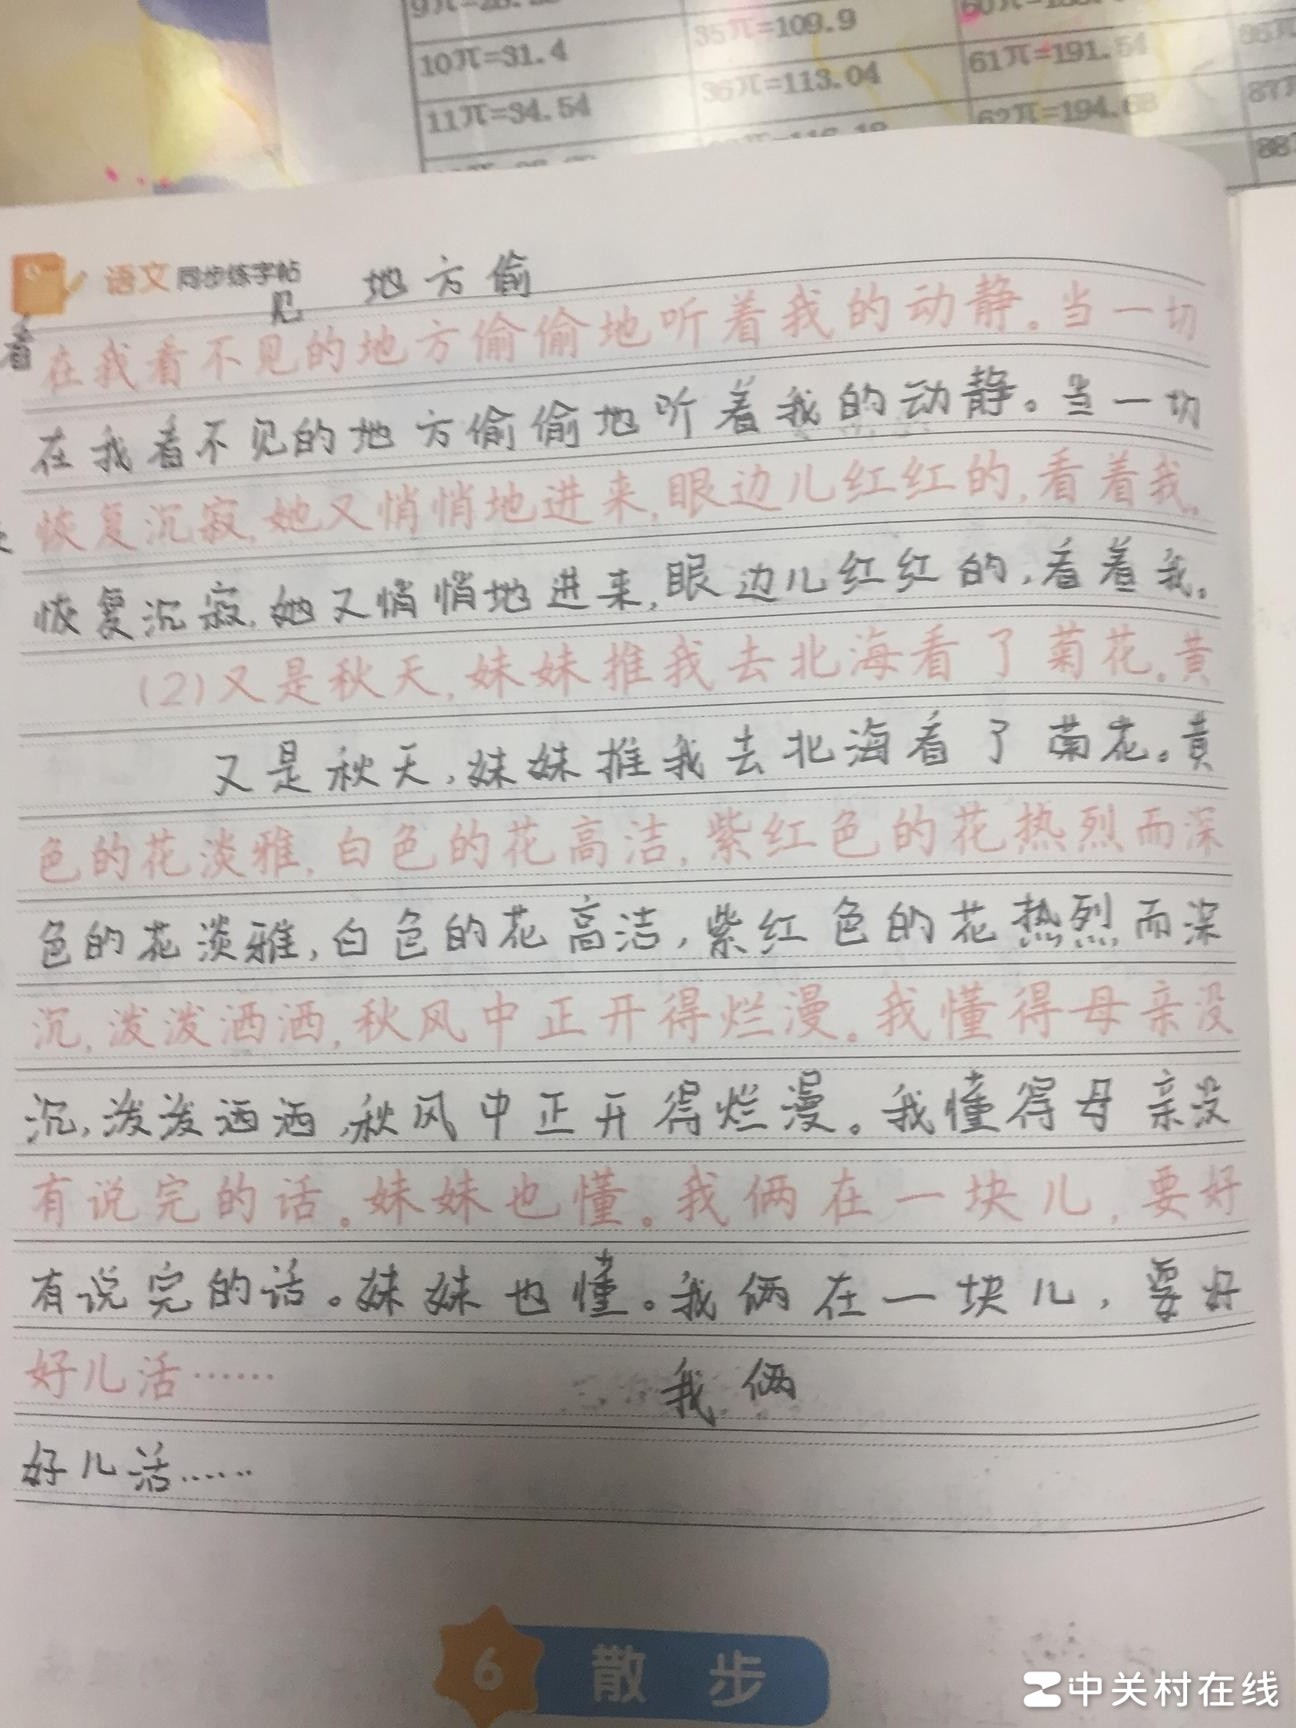 10π=31.4 35π=109.9
11π=34.54 36π=113.04 61π=191.54
62π=194.68
语文 同步练字帖 地方偷
见
看
在我看不见的地方偷偷地听着我的动静。当一切
在我看不见的地方偷偷地听着我的动静。当一切
恢复沉寂,她又悄悄地进来,眼边儿红红的,看着我。
恢复沉寂,她又悄悄地进来,眼边儿红红的,看着我。
(2)又是秋天,妹妹推我去北海看了菊花。黄
又是秋天,妹妹推我去北海看了菊花。黄
色的花淡雅,白色的花高洁,紫红色的花热烈而深
色的花淡雅,白色的花高洁,紫红色的花热烈而深
沉,泼泼洒洒,秋风中正开得烂漫。我懂得母亲没
沉,泼泼洒洒,秋风中正开得烂漫。我懂得母亲没
有说完的话。妹妹也懂。我俩在一块儿,要好
有说完的话。妹妹也懂。我俩在一块儿,要好
好儿活……
我俩
好儿活……
6 散步
中关村在线